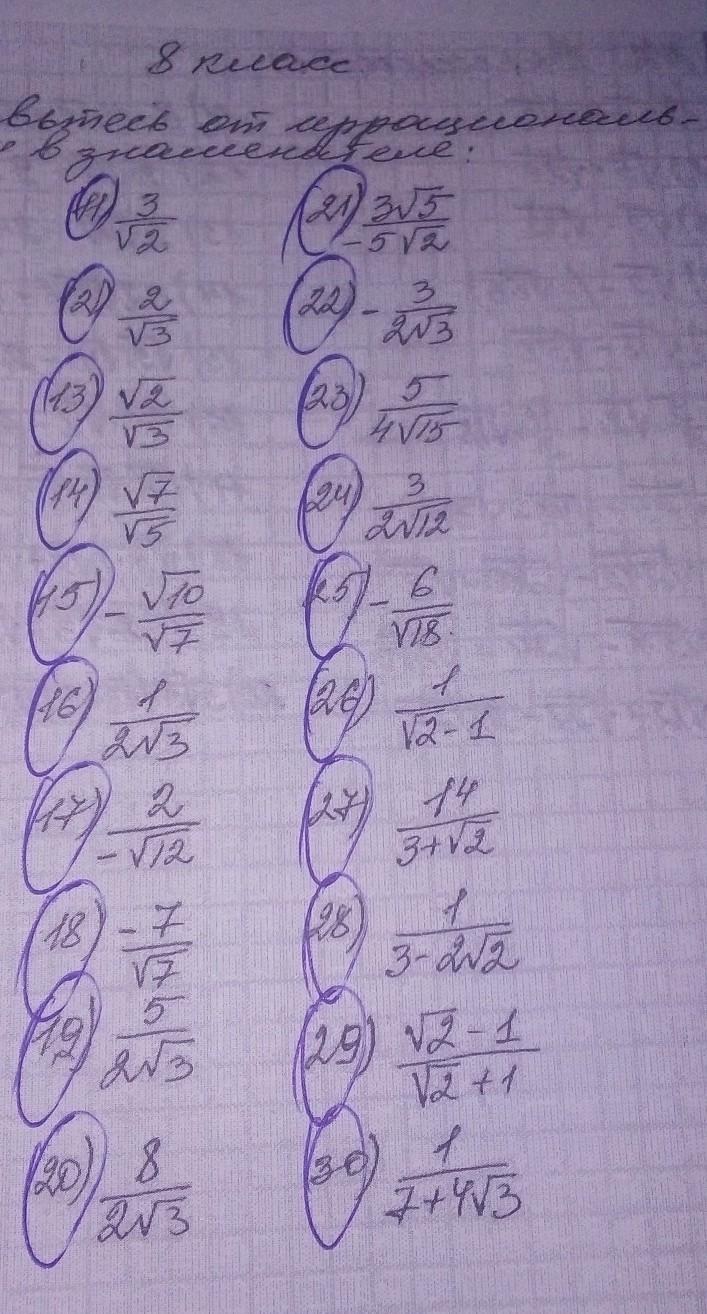 8 класс
вьтесь от иррациональ-
в знаменателе:
11) 3/√2
21) 3√5/-5√2
2) 2/√3
22) - 3/2√3
13) √2/√3
23) 5/4√15
14) √7/√5
24) 3/2√12
15) - √10/√7
25) - 6/√18
16) 1/2√3
26) 1/√2-1
17) 2/-√12
27) 14/3+√2
18) -7/√7
28) 1/3-2√2
19) 5/2√3
29) √2-1/√2+1
20) 8/2√3
30) 1/7+4√3